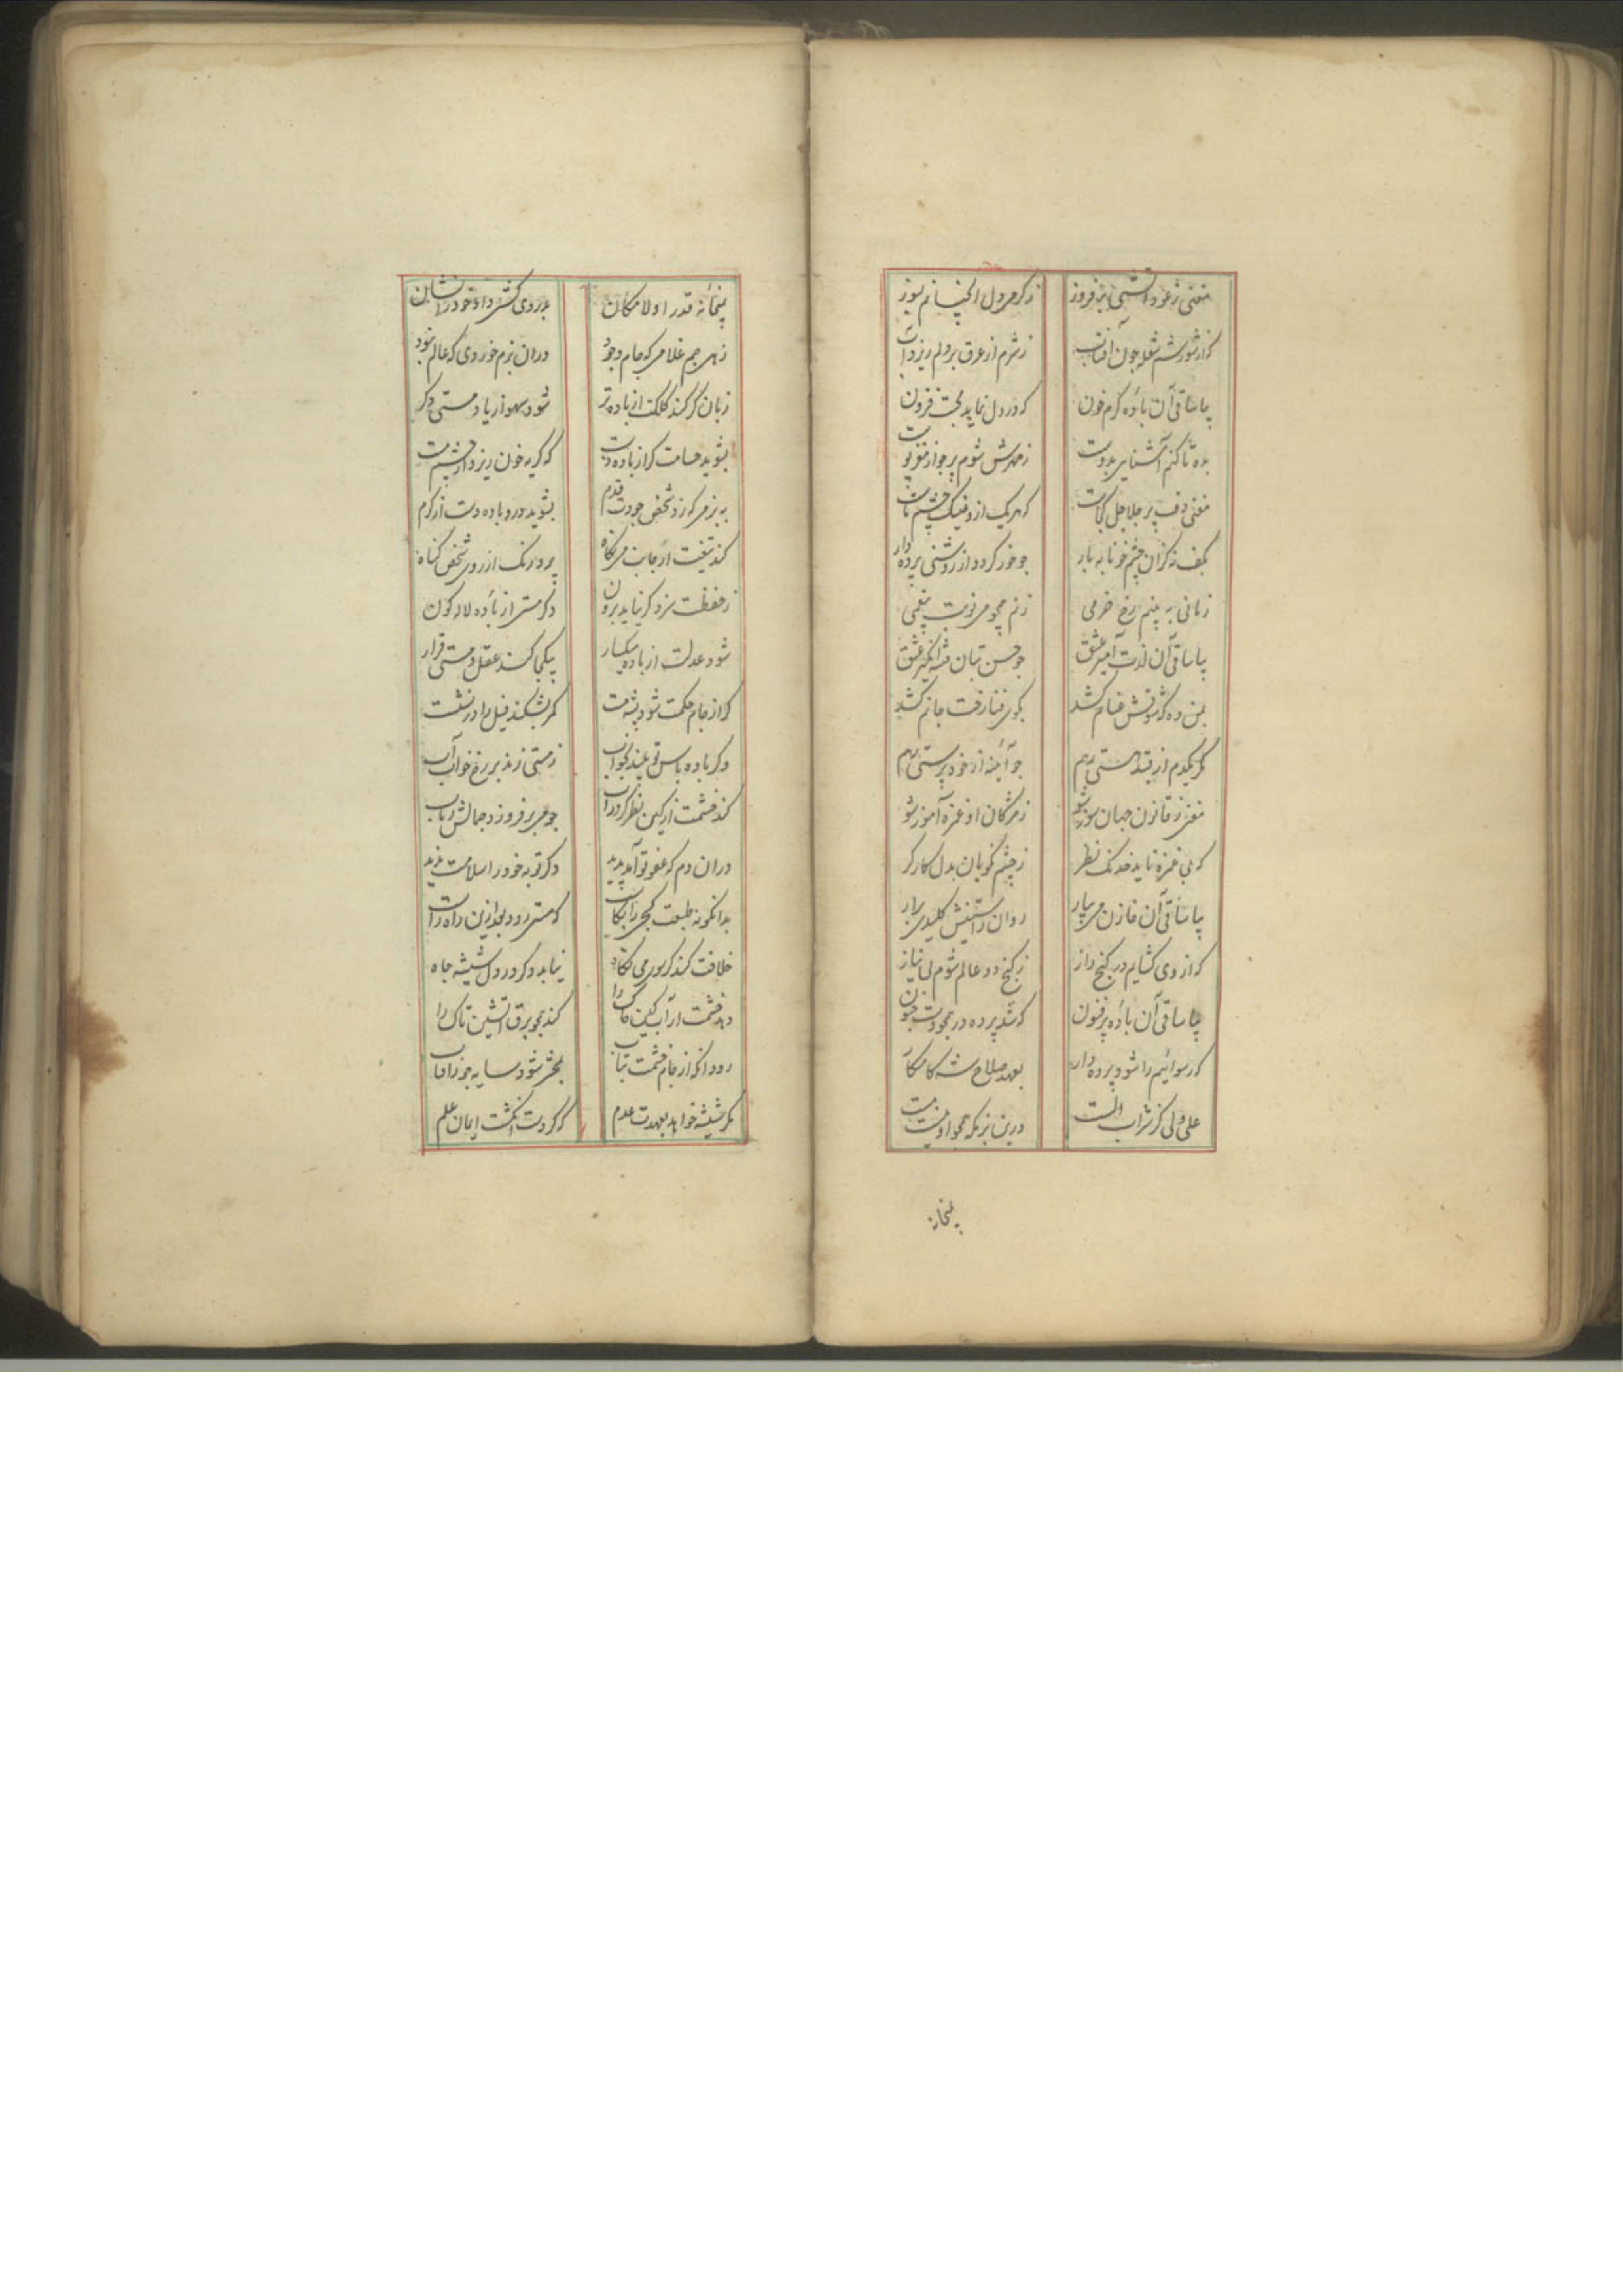 مغنی ز عود آتشی برفروز
ز کرمی دل آنچنانم بسوز
کز شورش شعله چون آفتاب
ز شرم از عرق بر دلم ریزد آب
بیا ساقی آن بادهٔ کرم خون
که در دل نماید محبت فزون
بده تا کنم آشنایی بدوست
ز مهرش شوم پر جو از مغز پوست
مغنی دف پر جلاجل کجاست
که هر یک ازو نیک چشم
بکف زکران چشم خونابه بار
جو خور کردد از روشنی پرده دار
زمانی به بینم رخ خرمی
زنم همجو می نوبت بیغمی
بیا ساقی آن لذت آمیز عشق
جو حسن بتان فتنه انکیز عشق
بمن ده که شوقش عنانم کشد
بکوی فنا رخت جانم کشد
مکر یکدم از قید هستی رهم
جو آئینه از خود پرستی رهم
مغنی ز قانون جهان سوز شو
ز مژکان او غمزه آموز شو
که بی غمزه ناید خدنک نظر
ز چشم نکویان بدل کارکر
بیا ساقی آن خازن می بیار
روان ز آستینش کلیدی برار
که از وی کشایم در کنج راز
ز کنج دو عالم شوم بی نیاز
بیا ساقی آن بادهٔ پر فنون
که شد پرده در همجو دست جنون
که رسوائیم را شود پرده دار
بعهد صلاح شه کامکار
علی ولی کز شراب الست
درین بزمکه همجو او نیست مست
بیخانه
بیخانه قدر او لامکان
بدردی کشی داد خود را نشان
زهی جم غلامی که جام وجود
دران بزم خوردی که عالم نبود
زبان کر کند کلکت از باده تر
شود سهو از یاد مستی دکر
بشوید حسامت کر از باده دست
که کریه خون ریزد از چشم مست
به بزمی که زد شخص جودت قدم
بشوید درو باده دست از کرم
کند تیغت ار جانب می نکاه
پرد رنک از روی شخص کناه
ز حفظت سزد کر نیاید برون
دکر مستی از بادهٔ لاله کون
شود عدلت ار باده میکسار
بیکجا کند عقل و مستی قرار
کر از جام حکمت شود پشه مست
کمر بشکند فیل را در نشست
وکر باده باس تو بیند بخواب
ز مستی زند بر رخ خواب آب
کند خشمت ار کین نظر در شراب
جو می برفروزد جمالش
دران دم که عفو تو آمد پدید
دکر توبه خود را سلامت ندید
بدانکونه طبعت کجی را بکاست
که مستی رود بعد ازین راه راست
خلافت کند کر بسوی می نکاه
نیابد دکر در دل شیشه جاه
دهد خشمت ار آب کین خاک را
کند همجو برق آتشین تاک را
رود انکه از جام خشمت بتاب
بحشر شود سایه جو آفتاب
مکر شیشه خواهد بعهدت عدم
که کردست انکشت ایمان علم